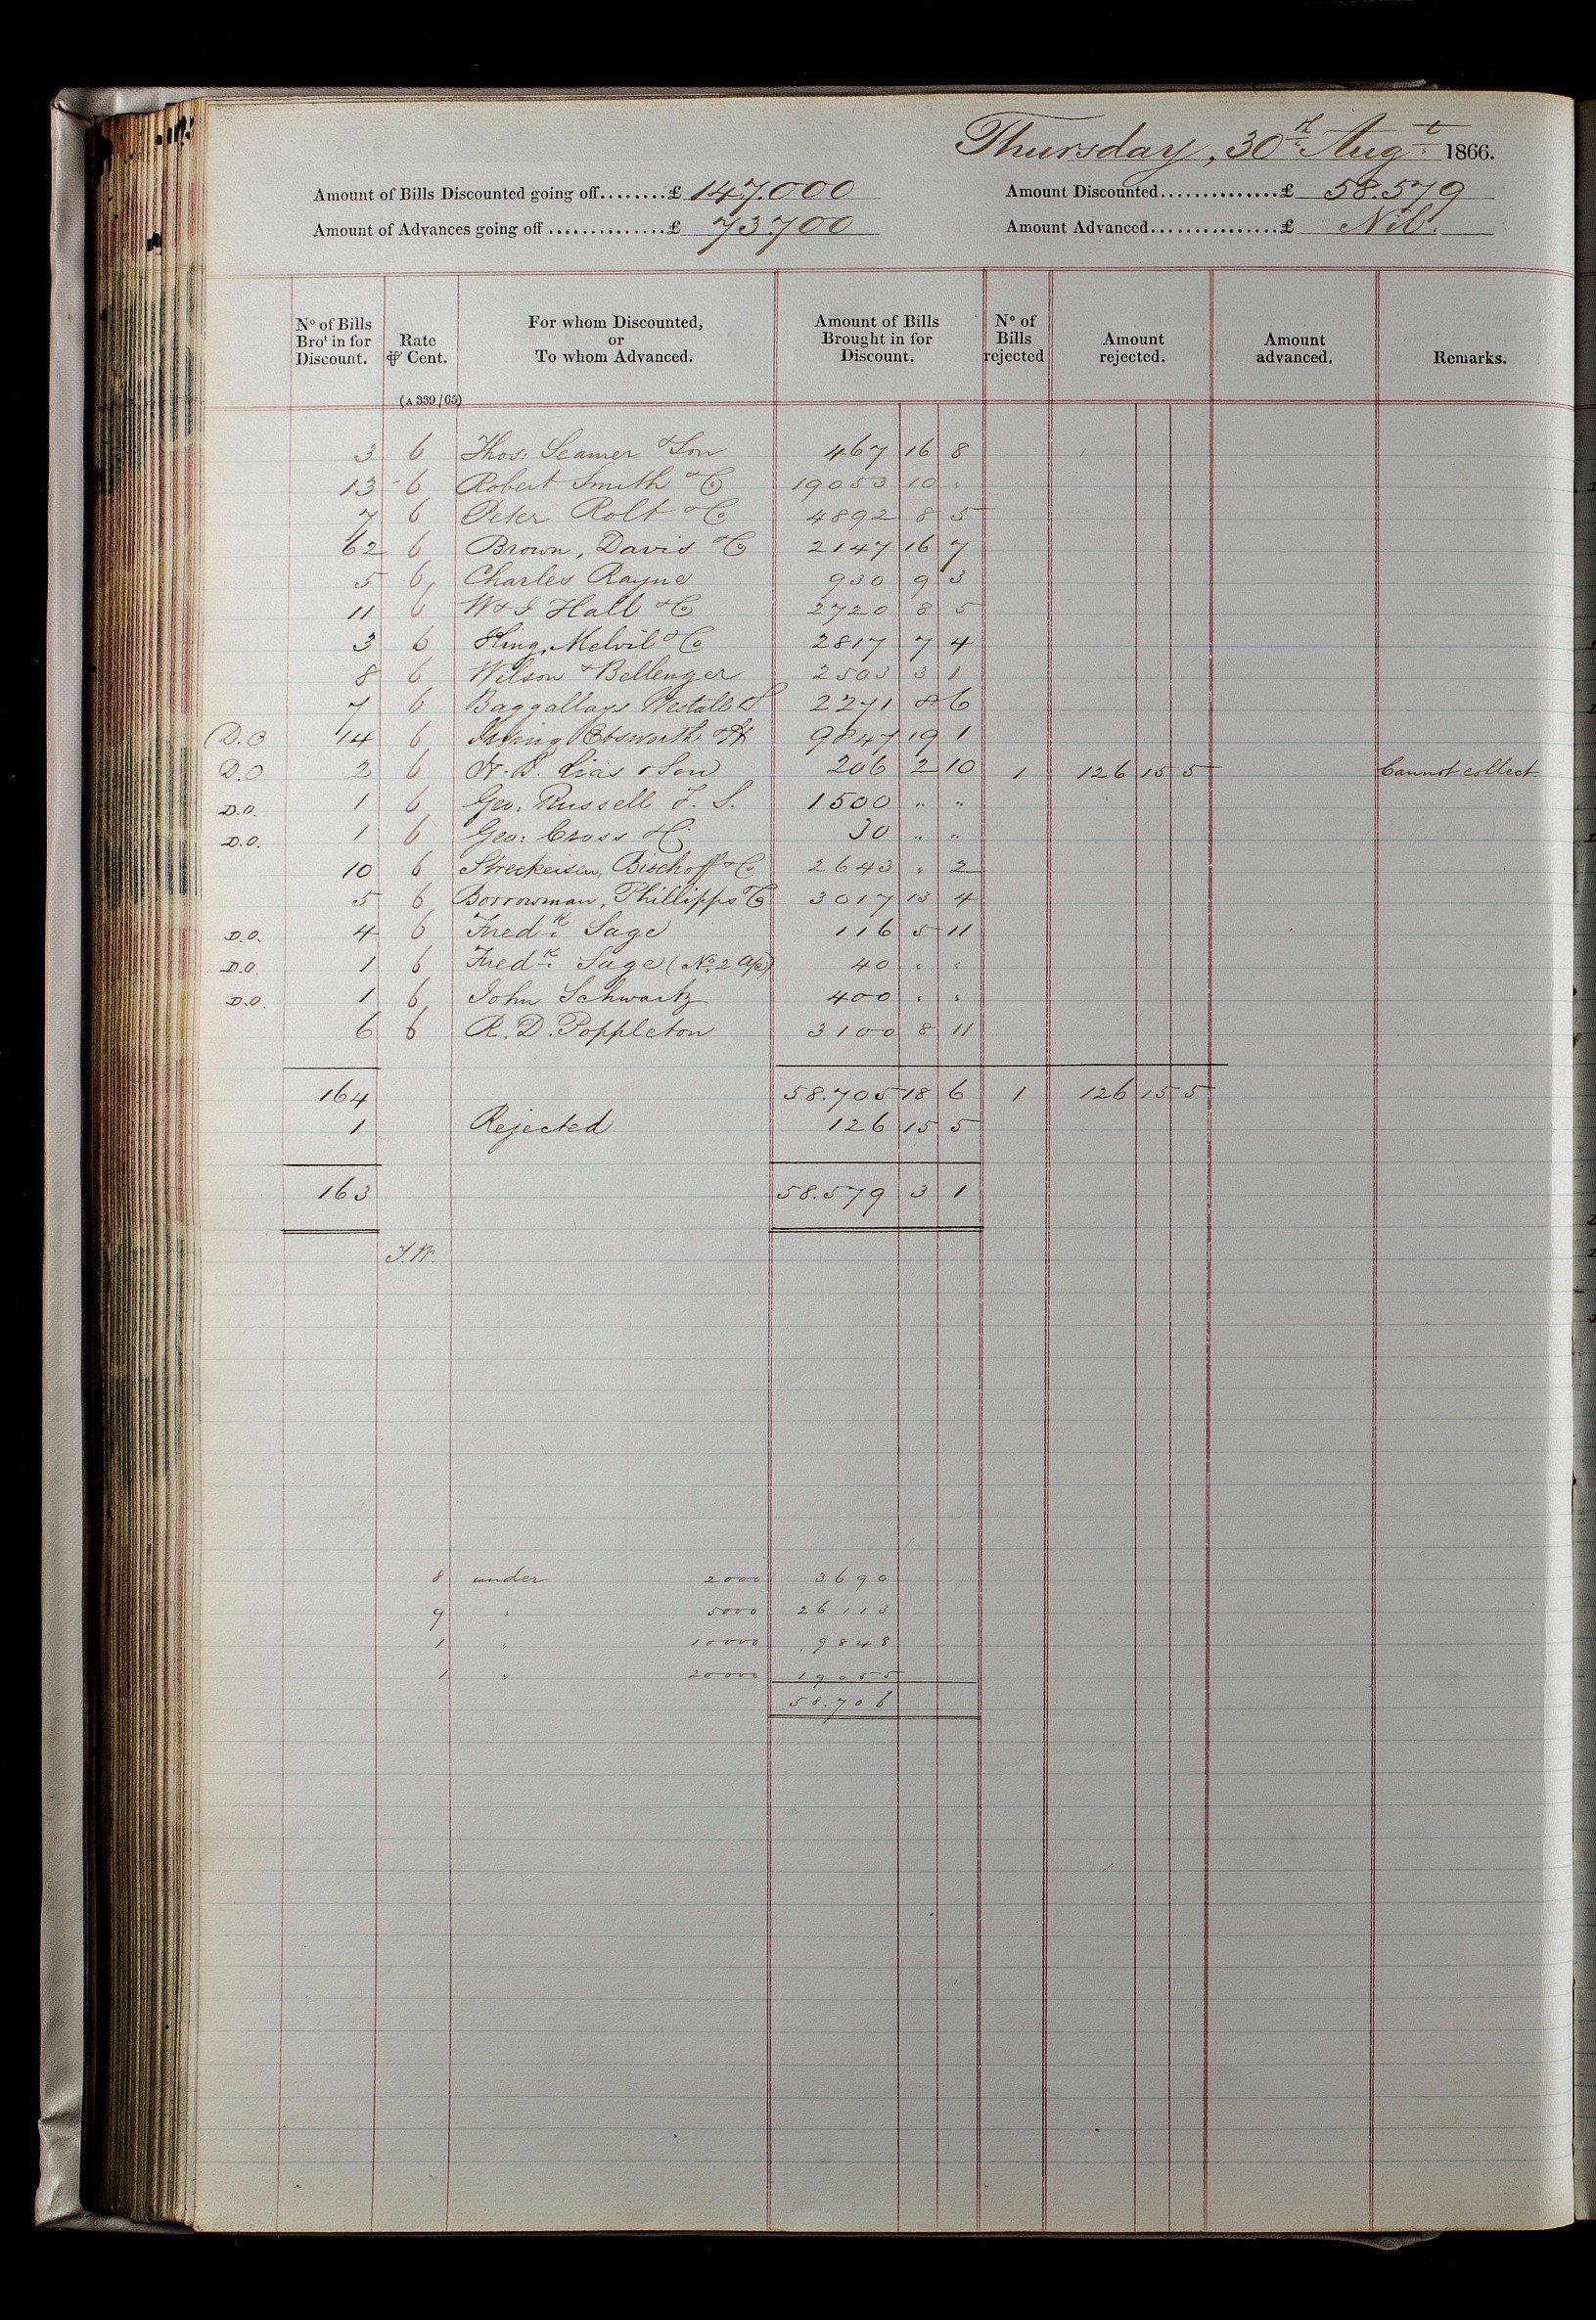 Thursday, 30th Augt 1866.
Amount of Bills Discounted going off........£ 147.000 Amount Discounted..............£ 58.579
Amount of Advances going off ..............£ 73700 Amount Advanced...............£ Nil.
No of Bills Brot in for Discount. Rate ⅌ Cent. For whom Discounted, or To whom Advanced. Amount of Bills Brought in for Discount. No of Bills rejected Amount rejected. Amount advanced. Remarks.
(A 339/65)
3 6 Thos: Seamer & Son 467 16 8
13 6 Robert Smith & Co 19053 10 "
7 6 Peter Rolt & Co 4892 8 5
62 6 Brown, Davis & Co 2147 16 7
5 6 Charles Rayne 930 9 3
11 6 W & J Hall & Co 2720 8 5
3 6 King, Melvil & Co 2817 7 4
8 6 Wilson & Bellenger 2503 3 1
7 6 Baggallays Westall & S 2271 8 6
D.O 14 6 Irving Ebsworth & H 9847 19 1
D.O 2 6 Lias & Son 206 2 10 1 126 15 5 Cannot collect
D.O. 1 6 Geo. Russell J. S. 1500 " "
D.O. 1 6 Geo: Cross & Co 30 " "
10 6 Streckeisen, Bischoff & Co 2643 " 2
5 6 Borrowman, Phillipps & Co 3017 13 4
D.O. 4 6 Fredk Sage 116 5 11
D.O. 1 6 Fredk Sage (No 2 a/c) 40 " "
D.O. 1 6 John Schwartz 400 " "
6 6 R. D. Poppleton 3100 8 11
164 58.705 18 6 1 126 15 5
1 Rejected 126 15 5
163 58.579 3 1
J.W.
8 under 2000 3690
9 " 5000 26113
1 " 10000 9848
1 " 20000 19055
58.706